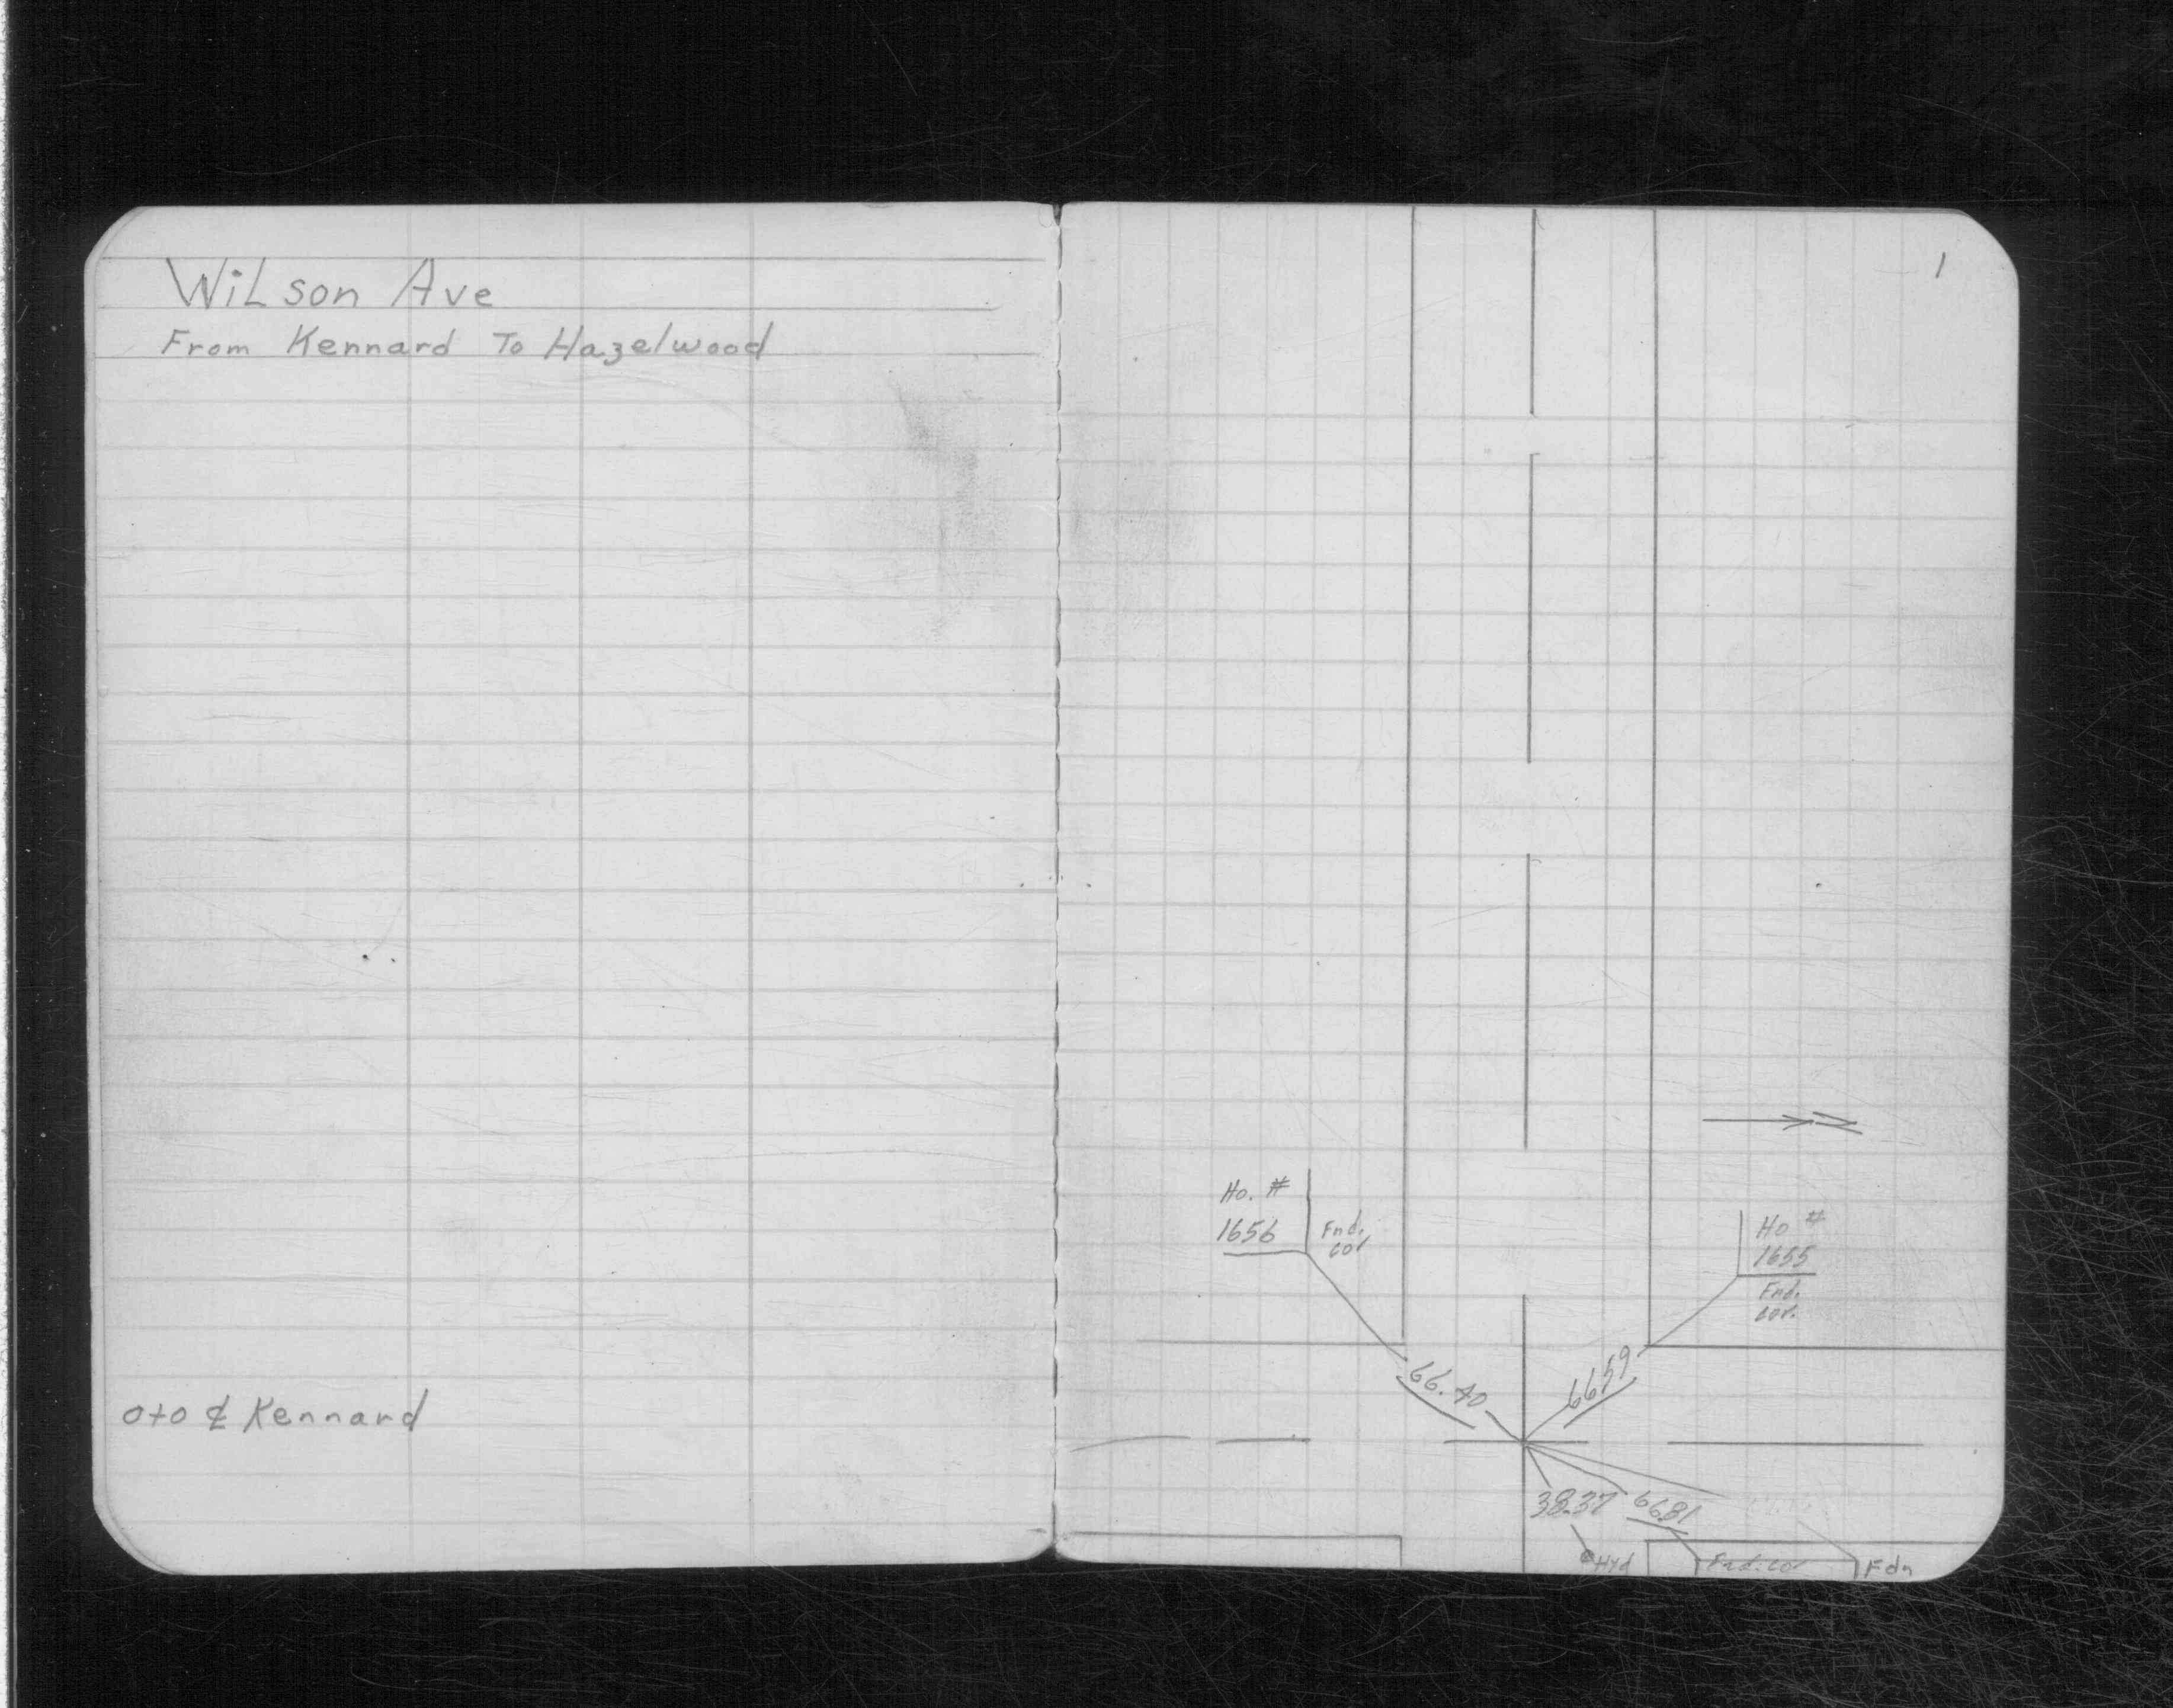 WiLson Ave
From Kennard To Hazelwood
0+0 ℄ Kennard
1
N
Ho. #
1656
Fnd.
cor
Ho #
1655
Fnd.
cor.
66.40
66.59
38.37
66.81
Hyd
Fnd. cor
Fdn